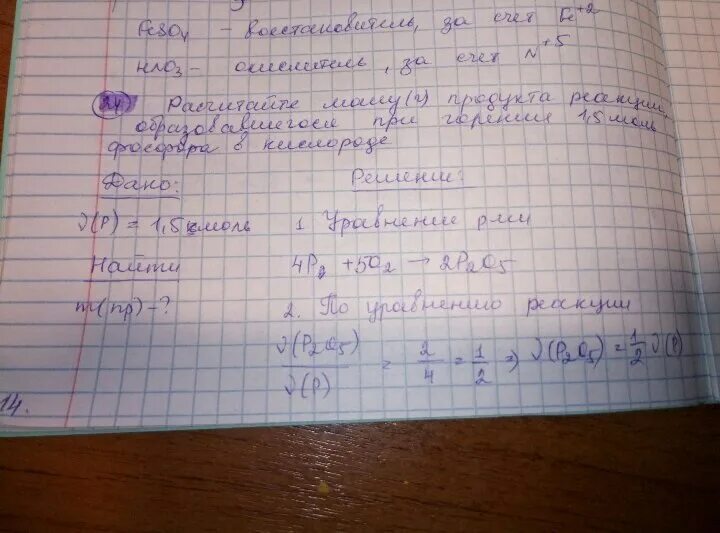 FeSO₄ – восстановитель, за счет Fe⁺²
HNO₃ – окислитель, за счет N⁺⁵
24 Расчитайте массу(г) продукта реакции,
образовавшегося при горении 1,5 моль
фосфора в кислороде
Дано: Решение:
ν(P) = 1,5 моль 1 Уравнение р-ии
Найти 4P + 5O₂ → 2P₂O₅
m(пр) – ? 2. По уравнению реакции
ν(P₂O₅)/ν(P) = 2/4 = 1/2 ⇒ ν(P₂O₅) = 1/2 ν(P)
14.